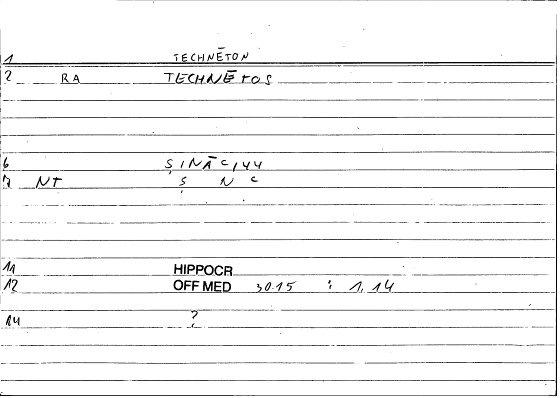 1 TECHNĒTON
2 RA TECHNĒTOS
6 ṢINĀC,44
7 NT Ṣ N C
11 HIPPOCR
12 OFF MED 30.15 : 1, 14
14 ?